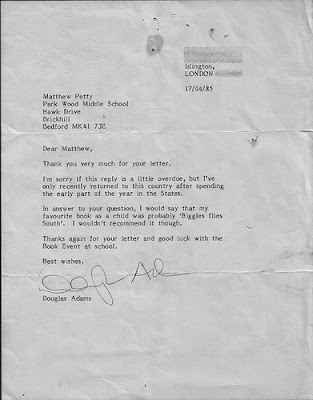 Islington,
LONDON
17/04/85
Matthew Petty
Park Wood Middle School
Hawk Drive
Brickhill
Bedford MK41 7JE
Dear Matthew,
Thank you very much for your letter.
I'm sorry if this reply is a little overdue, but I've
only recently returned to this country after spending
the early part of the year in the States.
In answer to your question, I would say that my
favourite book as a child was probably 'Biggles flies
South'. I wouldn't recommend it though.
Thanks again for your letter and good luck with the
Book Event at school.
Best wishes,
Douglas Adams